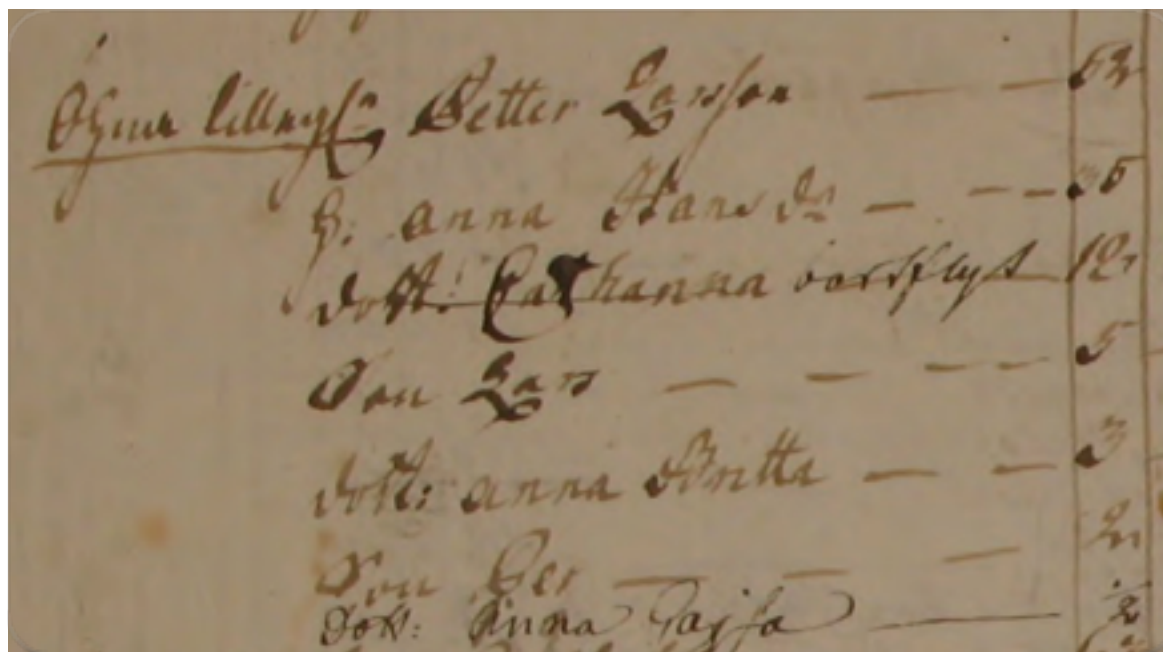 Petter Larson — — 52
H: Anna Hans dr — — — 36
dott: Catharina bortflyt 12
Son Lars — — — 5
dott: Anna Britta — — 3
Son Per — — — 2
Dott: Anna Cajsa — ½